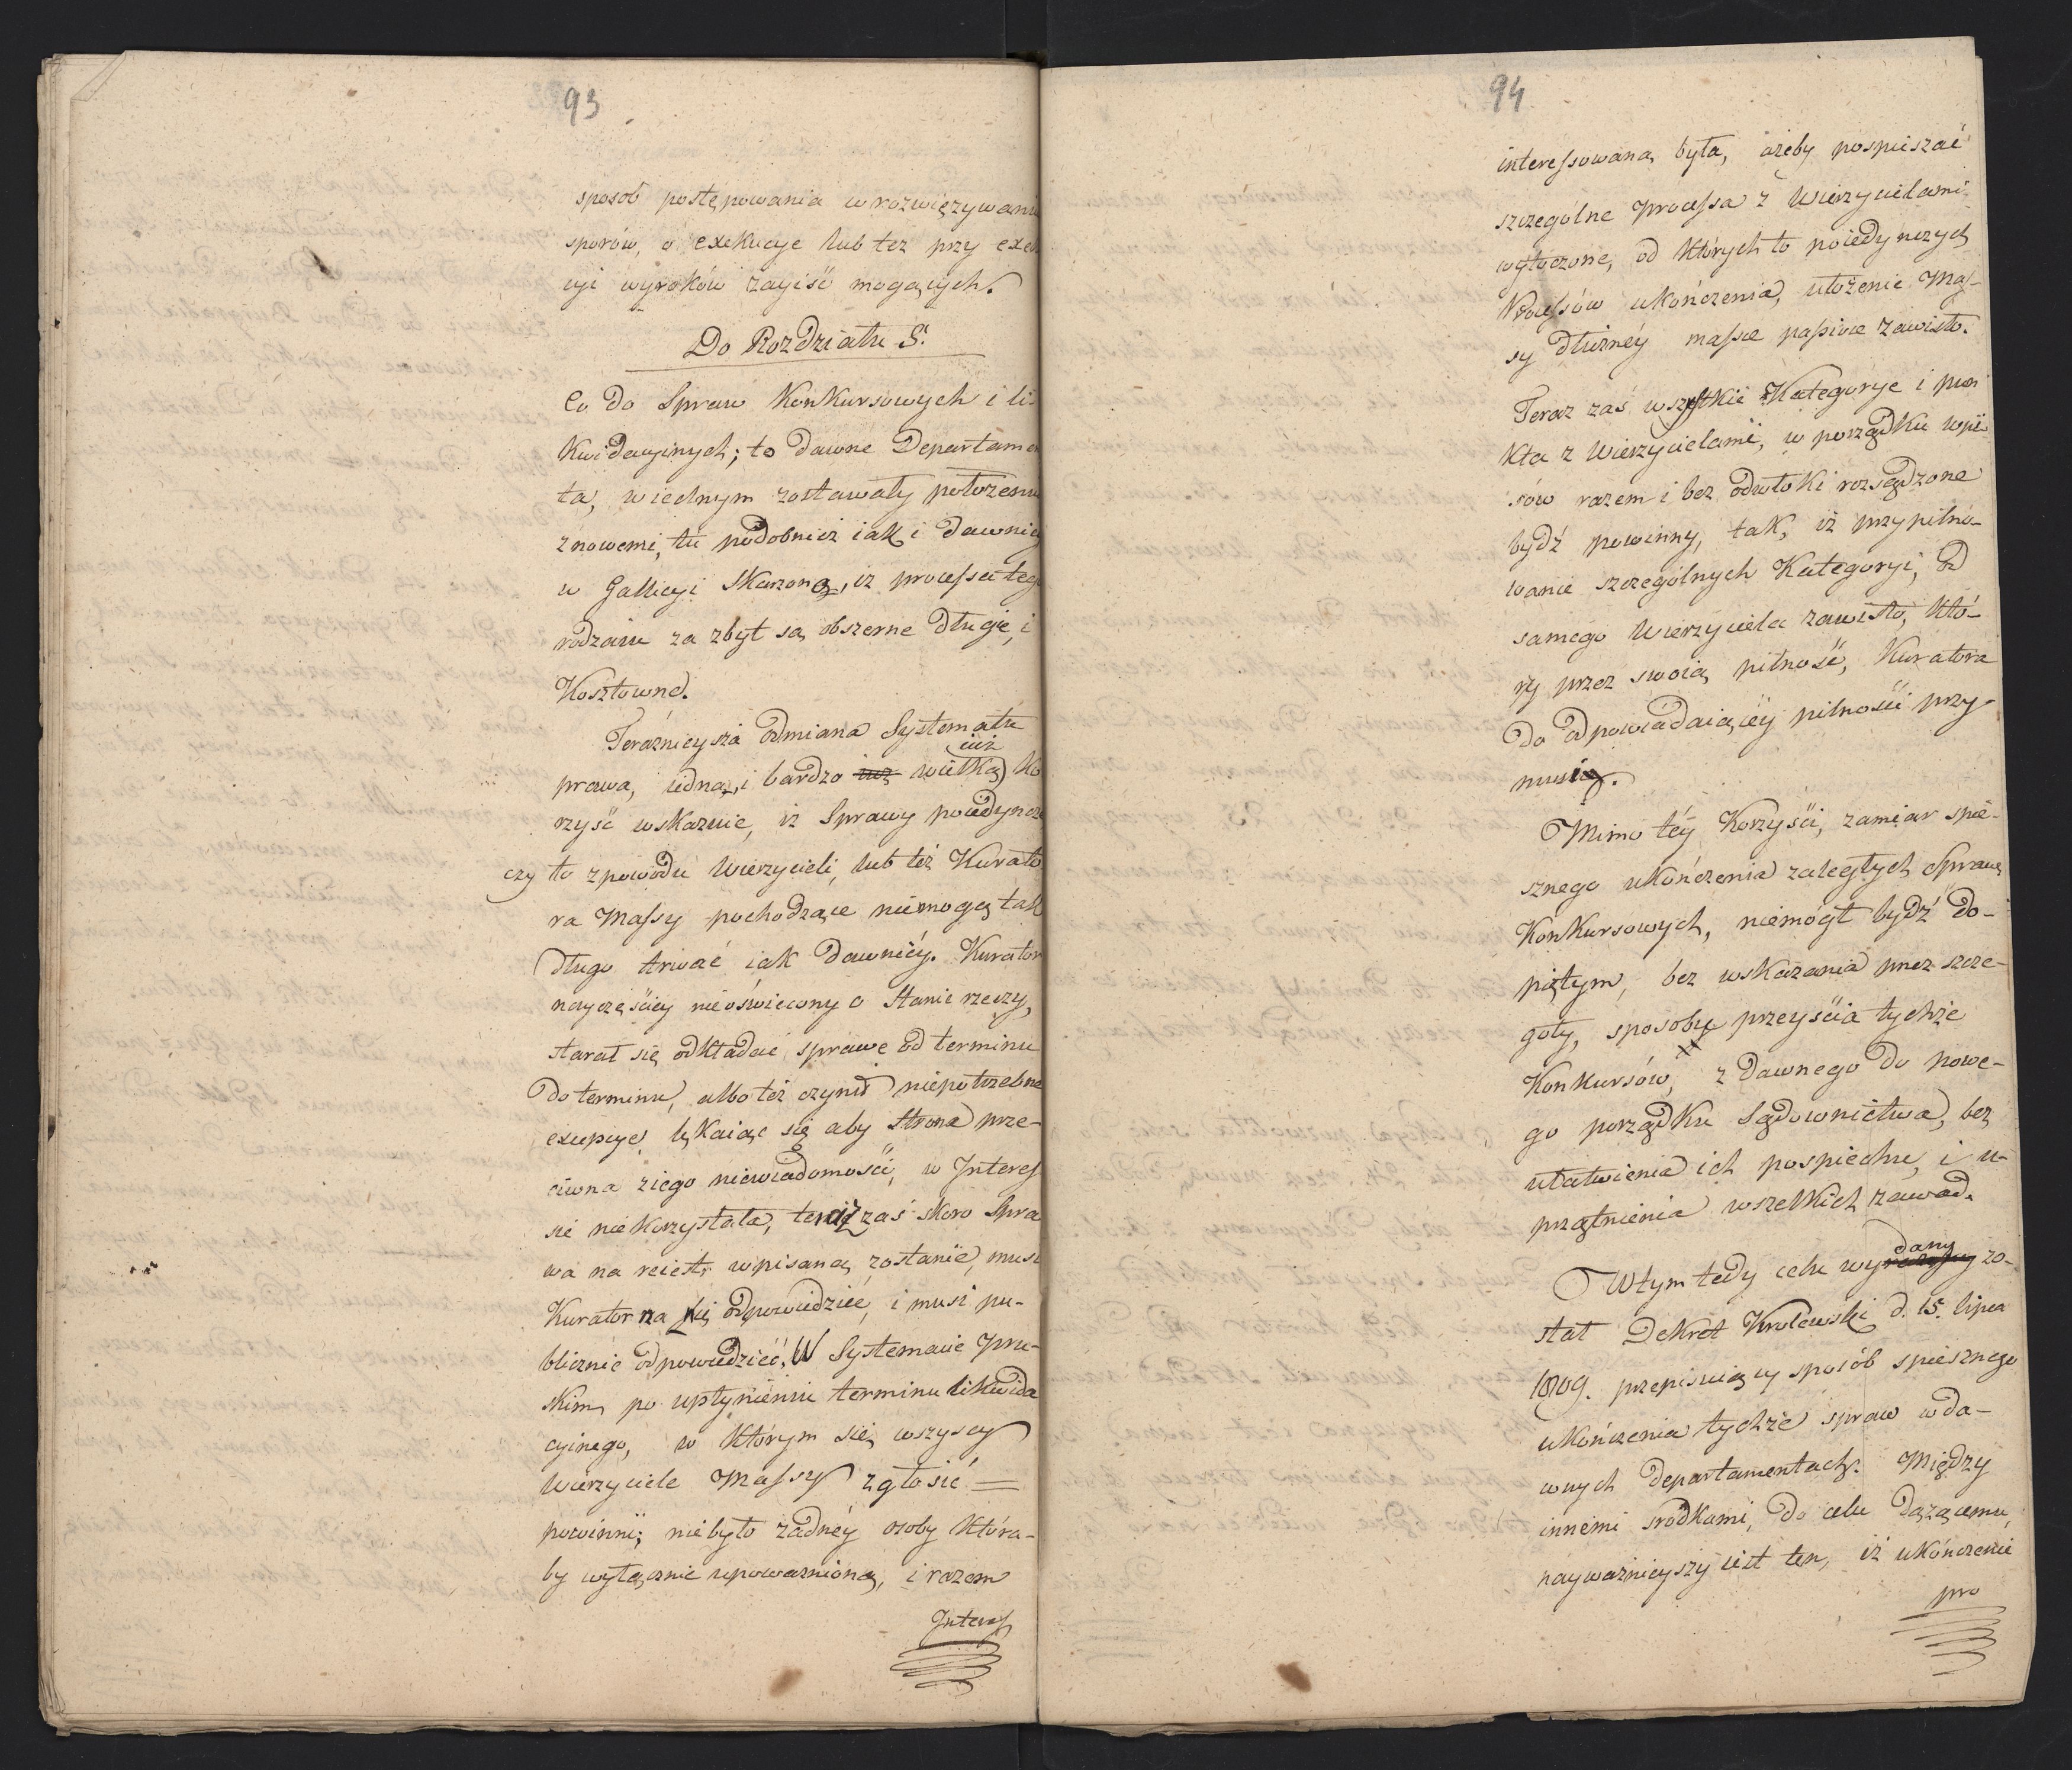 93
sposób postępowania w rozwięzywaniu
sporów, o exekucye lub też przy exek
ucyi wyroków zayiść mogących.
Do Rozdziału S.
Co do Spraw Konkursowych i li-
kwidacyinych; to dawne Departamen
ta, w iednym zostawały położeniu
z nowemi, tu podobnież iak i dawniey
w Gallicyi skarżono, iż processa tego
rodzaiu za zbyt są obszerne długie, i
Kosztowne.
Teraźnieysza odmiana Systematu
prawa, iedną, i bardzo iuż wielką ko
rzyść wskazuie, iż Sprawy poiedyncze
czy to z powodu Wierzycieli, lub też Kurato
ra Massy pochodzące niemogą tak
długo trwać iak dawniéy. Kurator
nayczęściey nieoświecony o stanie rzeczy,
starał się odkładać sprawę od terminu
do terminu, albo też czynił niepotrzebne
excepcye, lękaiąc się aby strona prze-
ciwna z iego niewiadomości, w Interes
sie niekorzystała, teraz zaś skoro Spra
wa na reiestr wpisaną zostanie, musi
Kurator na nią odpowiedzieć, i musi pu-
blicznie odpowiedzieć. W Systemacie Pru-
skim po upłynieniu terminu likwida
cyinego, w którym się wszyscy
Wierzyciele Massy zgłosić =
powinni; niebyło żadnéy osoby która-
by wyłącznie upoważnioną, i razem
Interes
94
interessowaną była, ażeby pospieszać
szczególne processa z Wierzycielami
wytoczone, od których to poiedynczych
Processów ukończenia, ułożenie Mas-
sy dłużnéy massae passivae zawisło.
Teraz zaś wszystkie Kategorye i pun
kta z Wierzycielami, w porządku wpi
sów razem i bez odwłoki rozsądzone
bydź powinny, tak, iż przypilno-
wanie szczególnych Kategoryi, od
samego Wierzyciela zawisło, któ-
ry przez swoią pilność, Kuratora
do odpowiadaiącéy pilności przy-
musi.
Mimo téy Korzyści, zamiar spie-
sznego ukończenia zaległych Spraw
Konkursowych, niemógł bydź do-
piętym, bez wskazania przez szcze-
góły, sposobu przeyścia tychże
Konkursów, z dawnego do nowe-
go porządku Sądownictwa, bez
ułatwienia ich pospiechu, i u-
przątnienia wszelkich zawad.
W tym tedy celu wydany zo-
stał Dekret Królewski d. 15. lipca
1809. przepisuiący sposób spiesznego
ukończenia tychże spraw w da-
wnych Departamentach. Między
innemi środkami, do celu dążącemu,
nayważnieyszy iest ten, iż ukończenie
pro